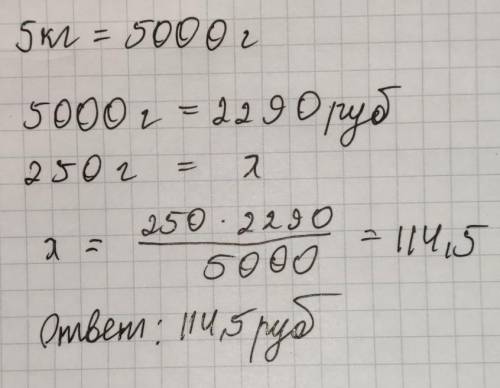 5кг = 5000г
5000г = 2290 руб
250г = х
х = 250 · 2290 / 5000 = 114,5
Ответ: 114,5 руб